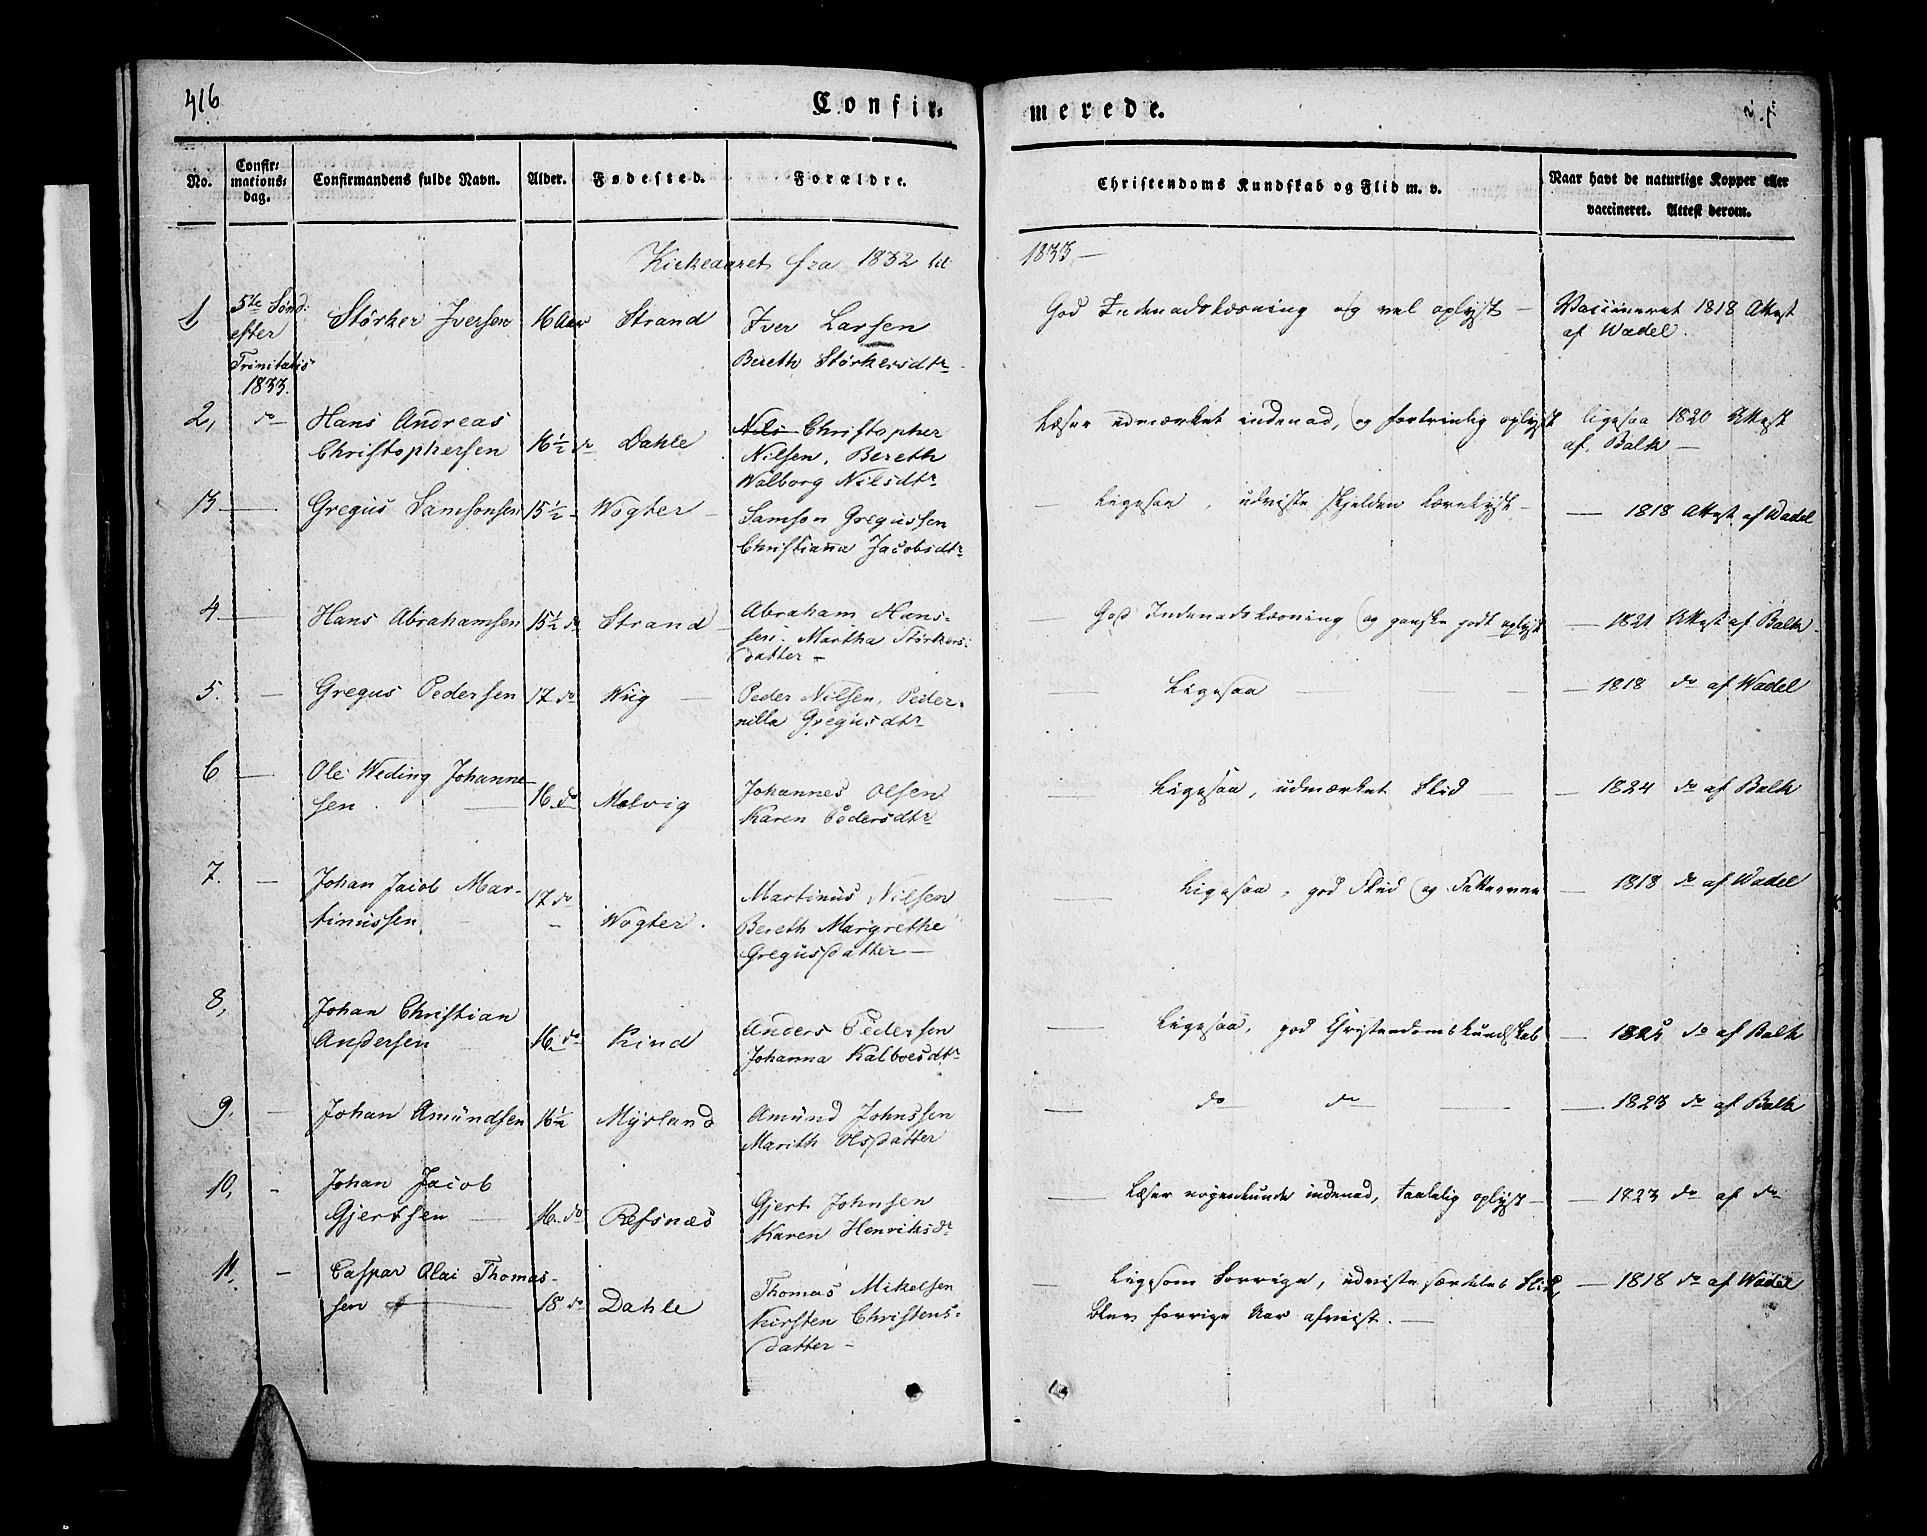 416
Confir-
merede.
No.
Confir-
mations-
dag.
Confirmandens fulde Navn.
Alder.
Fødested.
Forældre.
Christendoms Kundskab og Flid m. v.
Naar havt de naturlige Kopper eller
vaccineret. Attest derom.
Kirkeaaret fra 1832 til
1833 —
1
5te Sønd:
efter
Trinitatis
1833.
Størker Iversen
16 Aar
Strand
Iver Larsen
Bereth Størkersdtr
God Indenadslæsning og vel oplyst —
Vaccineret 1818 Attest
af Wadel.
2,
do
Hans Andreas
Christophersen
16½ dr
Dahle
Nils Christopher
Nilsen, Bereth
Walborg Nilsdtr
Læser udmærket indenad, og fortrinlig oplyst
ligesaa 1820 Attest
af Balk —
3 —
Gregus Samsonsen
15½ -
Wogter —
Samson Gregussen
Christianna Jacobsdtr
— Ligesaa, udviste skjelden Lærelyst —
— 1818 Attest af Wadel
4 —
Hans Abrahamsen
15½ do
Strand
Abraham Hans-
sen. Martha Størkers-
datter —
— God Indenadslæsning og ganske godt oplyst
— 1821 Attest af Balk
5. —
Gregus Pedersen
17 do
Wiig —
Peder Nilsen, Peder-
nilla Gregusdtr
Ligesaa —
— 1818 do af Wadel
6 —
Ole Weding Johanne-
sen.
16 do
Malvig
Johannes Olsen
Karen Pedersdtr
— Ligesaa, udmærket Flid —
— 1824 do af Balk
7. —
Johan Jacob Mar-
tinussen
17 do
Wogter.
Martinus Nilsen
Bereth Margrethe
Gregusdatter —
— Ligesaa, god Flid og Fatteevne
— 1818 do af Wadel
8,
Johan Christian
Andersen
16 do
Kind
Anders Pedersen
Johanna Kalboesdtr
— Ligesaa, god Christendomskundskab
— 1825 do af Balk
9. —
Johan Amundsen
16½
Myrland
Amund Johnssen
Marith Olsdatter
— do do —
— 1823 do af Balk
10, -
Johan Jacob
Gjertsen —
16 do
Refsnæs
Gjert Johnsen
Karen Henriksdr
— Læser nogenlunde indenad, taalelig oplyst —
— 1823 do af do
11. —
Caspar Olai Thomas-
sen —
18 do
Dahle
Thomas Mikelsen
Kirsten Christens-
datter —
— Ligesom Forrige, udviste særdeles Flid,
blev forrige Aar afviist. —
— 1818 do af Wadel